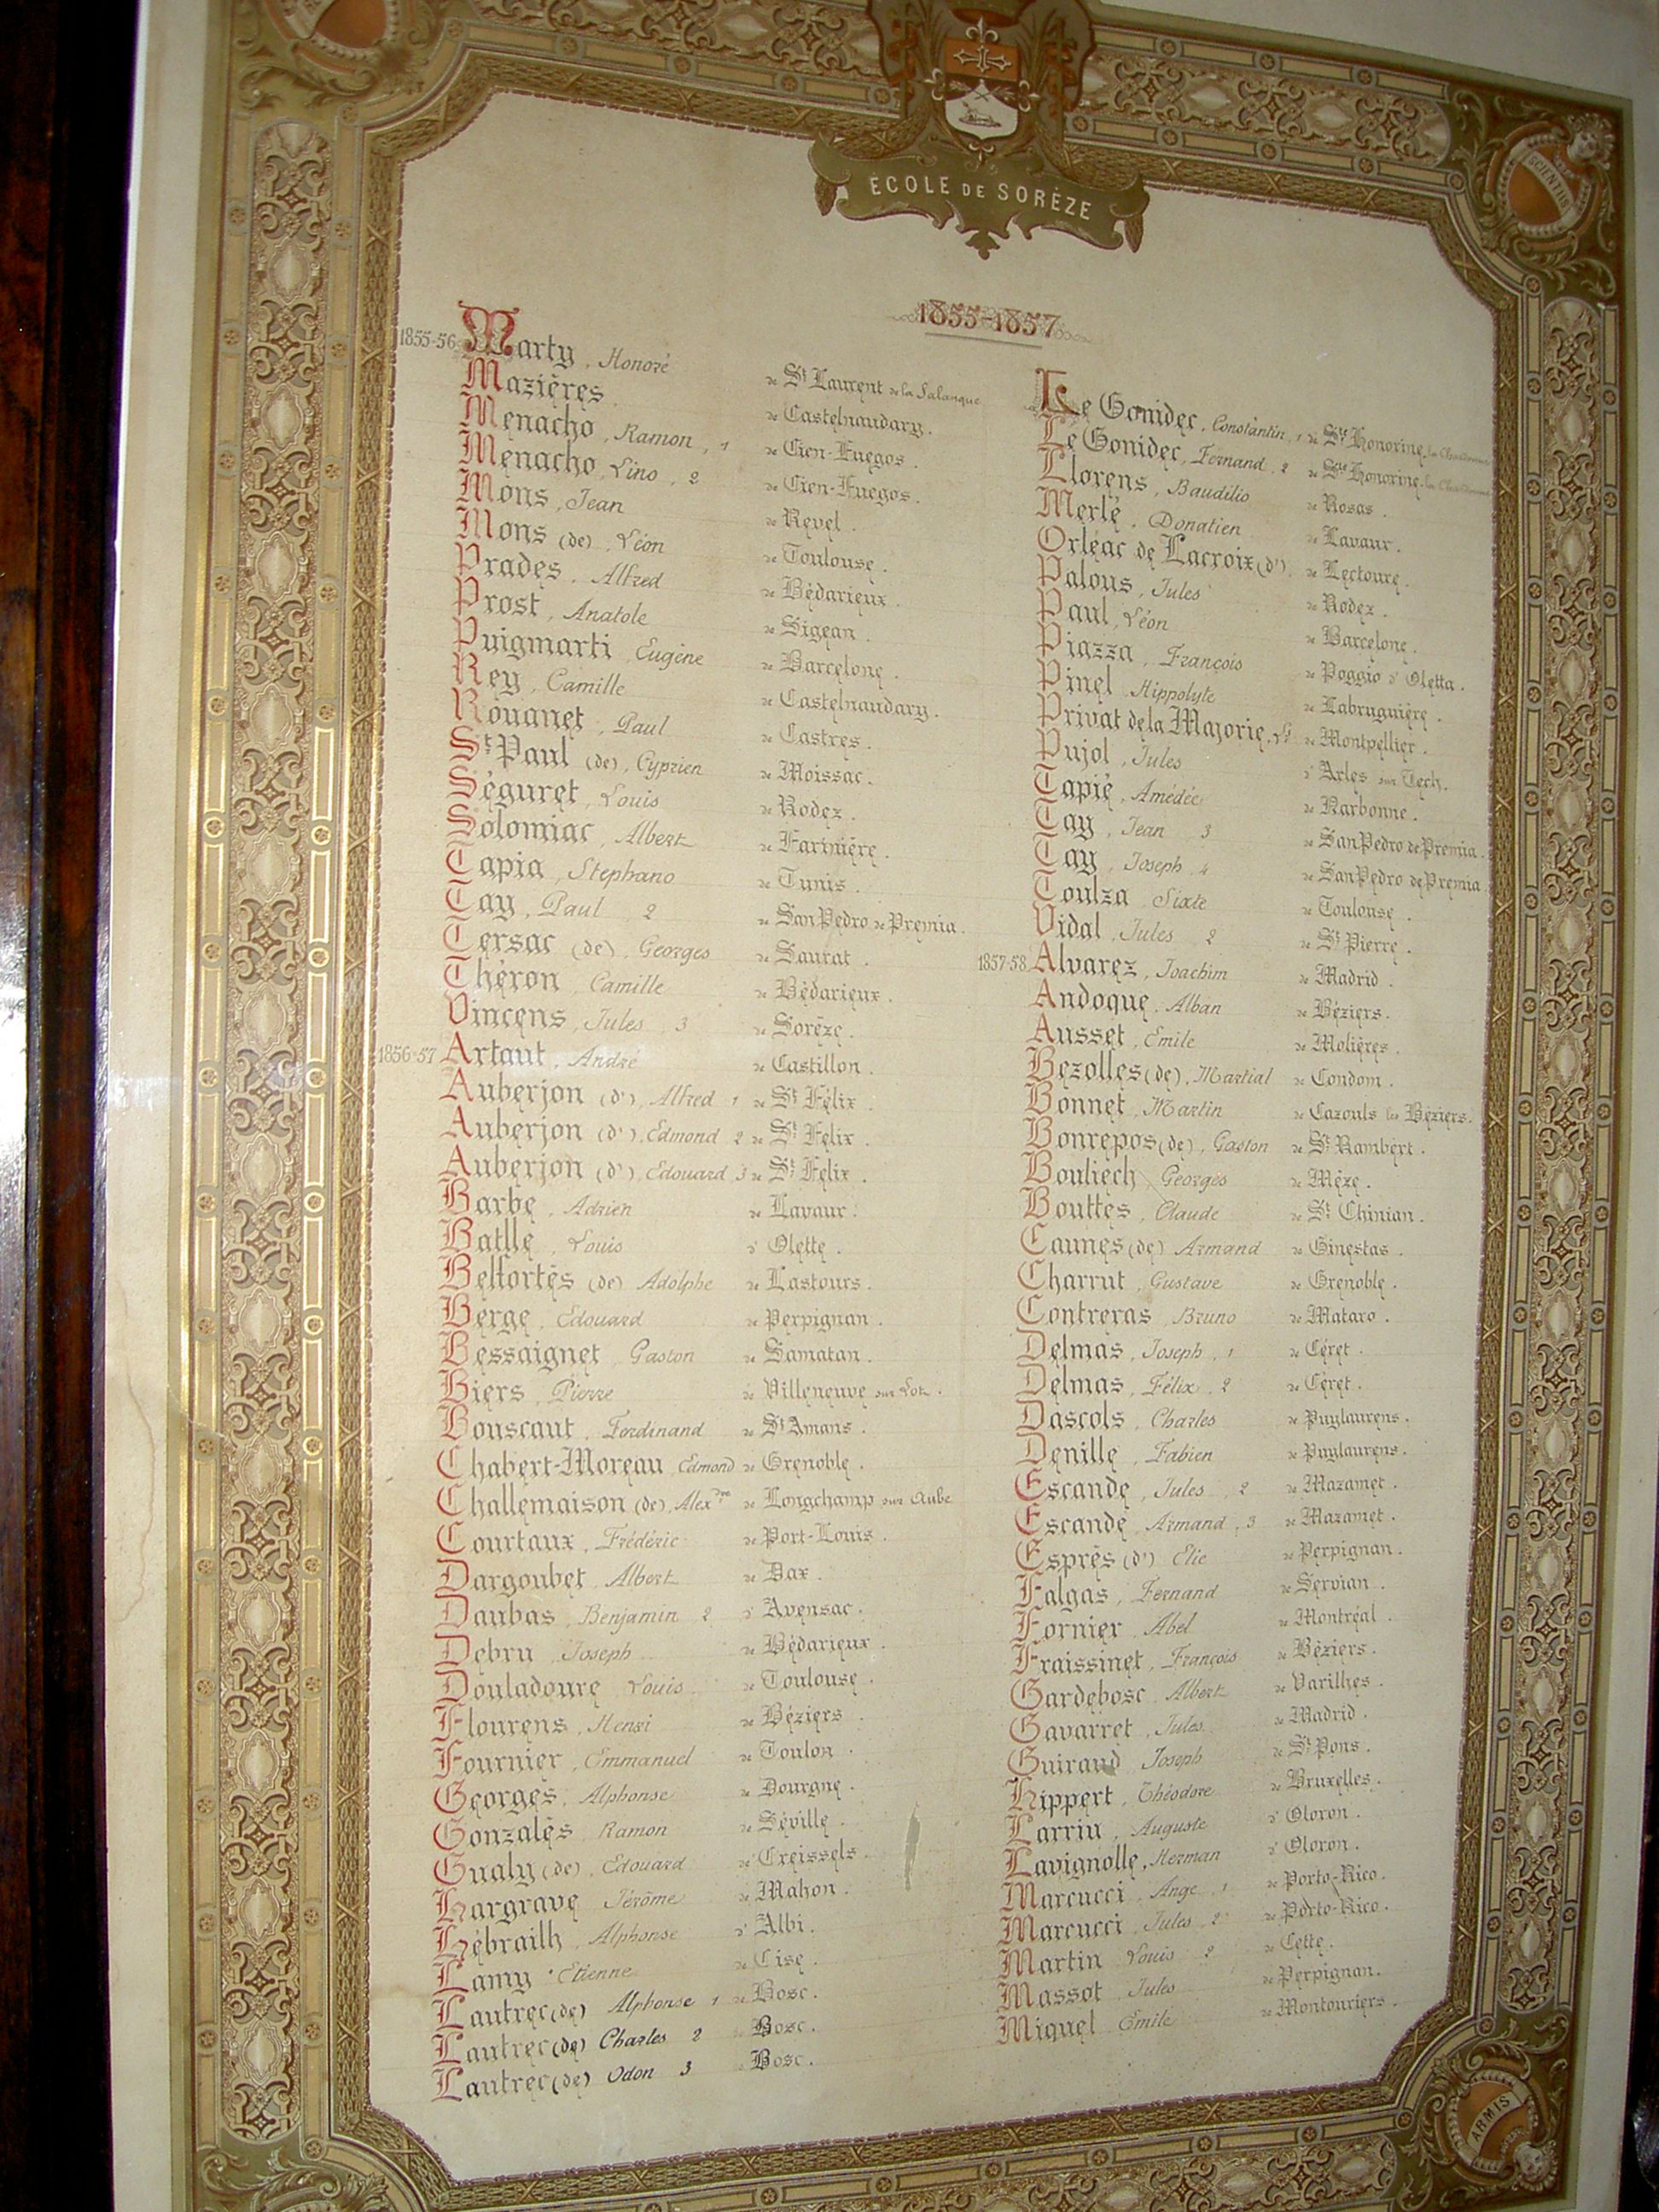 SCIENTIIS
ÉCOLE DE SORÈZE
1855-1857
1855-56 Marty, Honoré de St Laurent de la Salanque
Mazières de Castelnaudary.
Menacho, Ramon, 1 de Cien-Fuegos.
Menacho, Lino, 2 de Cien-Fuegos.
Mons, Jean de Revel.
Mons (de), Léon de Toulouse.
Prades, Alfred de Bédarieux.
Prost, Anatole de Sigean.
Puigmarti Eugène de Barcelone.
Rey, Camille de Castelnaudary.
Rouanet, Paul de Castres.
St Paul (de), Cyprien de Moissac.
Séguret, Louis de Rodez.
Solomiac, Albert de Farinière.
Tapia, Stephano de Tunis.
Tay, Paul 2 de San Pedro de Premia.
Tersac (de), Georges de Saurat.
Théron, Camille de Bédarieux.
Vincens, Jules 3 de Sorèze.
1856-57 Artaut, André de Castillon.
Auberjon (d'), Alfred 1 de St Félix.
Auberjon (d'), Edmond 2 de St Félix.
Auberjon (d'), Edouard 3 de St Félix.
Barbe, Adrien de Lavaur.
Batlle, Louis d' Olette.
Belfortès (de) Adolphe de Lastours.
Berge, Edouard de Perpignan.
Bessaignet, Gaston de Samatan.
Biers, Pierre de Villeneuve sur Lot.
Bouscaut, Ferdinand de St Amans.
Chabert-Moreau, Edmond de Grenoble.
Challemaison (de), Alexdre de Longchamp sur Aube
Courtaux, Frédéric de Port-Louis.
Dargoubet, Albert de Dax.
Daubas, Benjamin 2 d' Avensac.
Debru, Joseph de Bédarieux.
Douladoure, Louis de Toulouse.
Flourens, Henri de Béziers.
Fournier, Emmanuel de Toulon.
Georges, Alphonse de Dourgne.
Gonzalès, Ramon de Séville.
Gualy (de), Edouard de Creissels.
Hargrave Jérôme de Mahon.
Hébrailh, Alphonse d' Albi.
Lamy, Etienne de Cise.
Lautrec (de) Alphonse 1 de Bosc.
Lautrec (de) Charles 2 Bosc.
Lautrec (de) Odon 3 Bosc.
Le Gonidec, Constantin, 1 de Ste Honorine
Le Gonidec, Fernand, 2 de Ste Honorine
Llorens, Baudilio de Rosas.
Merlé, Donatien de Lavaur.
Orléac de Lacroix (d') de Lectoure.
Palous, Jules de Rodez.
Paul, Léon de Barcelone.
Piazza, François de Poggio d' Oletta.
Pinel, Hippolyte de Labruguière.
Privat de la Majorie, de Montpellier.
Pujol, Jules d' Arles sur Tech.
Tapié, Amédée de Narbonne.
Tay, Jean 3 de San Pedro de Premia.
Tay, Joseph 4 de San Pedro de Premia.
Toulza Sixte de Toulouse.
Vidal, Jules 2 de St Pierre.
1857-58 Alvarez, Joachim de Madrid.
Andoque, Alban de Béziers.
Ausset, Emile de Molières.
Bezolles (de), Martial de Condom.
Bonnet, Martin de Cazouls les Béziers.
Bonrepos (de), Gaston de St Rambert.
Bouliech, Georges de Mèze.
Bouttes, Claude de St Chinian.
Caunes (de) Armand de Ginestas.
Charrut, Gustave de Grenoble.
Contreras, Bruno de Mataro.
Delmas, Joseph, 1 de Céret.
Delmas, Félix, 2 de Céret.
Dascols, Charles de Puylaurens.
Denille, Fabien de Puylaurens.
Escande, Jules, 2 de Mazamet.
Escande, Armand, 3 de Mazamet.
Esprès (d') Elie de Perpignan.
Falgas, Fernand de Servian.
Fornier, Abel de Montréal.
Fraissinet, François de Béziers.
Gardebosc, Albert de Varilhes.
Gavarret, Jules de Madrid.
Guiraud, Joseph de St Pons.
Hippert, Théodore de Bruxelles.
Larriu, Auguste d' Oloron.
Lavignolle, Herman d' Oloron.
Marcucci, Ange, 1 de Porto-Rico.
Marcucci, Jules, 2 de Porto-Rico.
Martin Louis 2 de Cette.
Massot, Jules de Perpignan.
Miquel Emile de Montouriers.
ARMIS